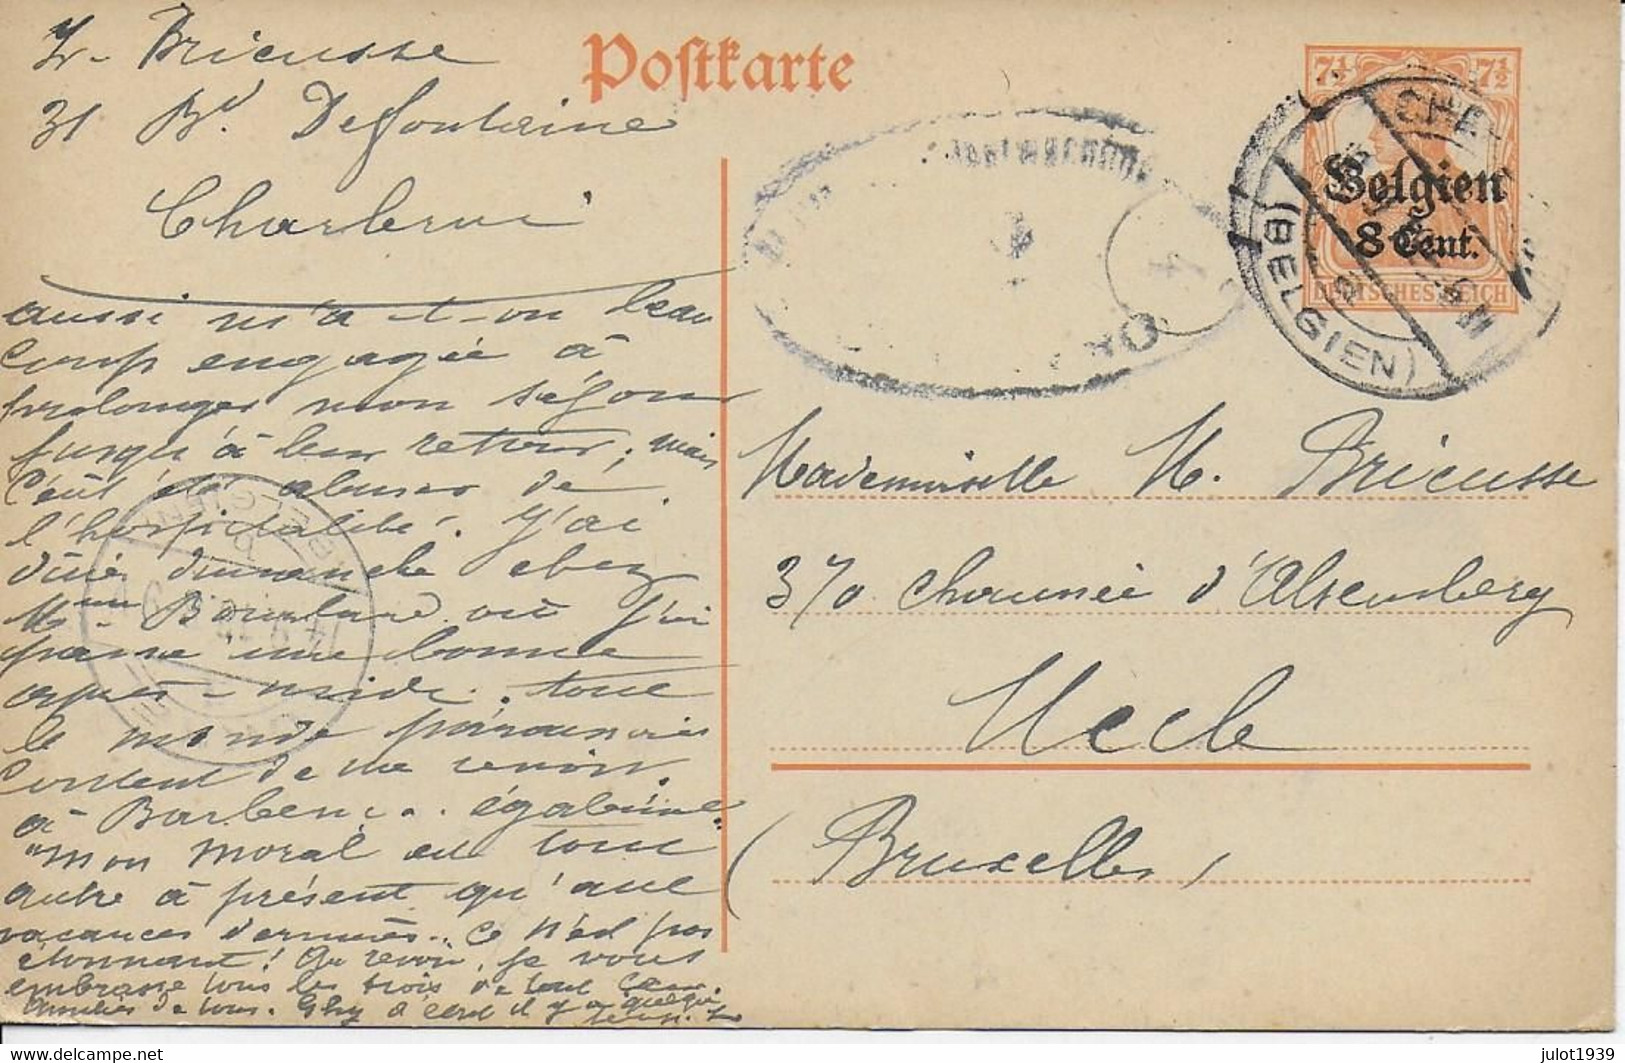 Bricusse
31 Bd. Defontaine
Charleroi
Postkarte
7½ 7½
Belgien
8 Cent.
DEUTSCHES REICH
(BELGIEN)
4
aussi m'a-t-on beau
coup engagée à
prolonger mon séjour
jusqu'à leur retour; mais
c'eût été abuser de
l'hospitalité. J'ai
dîné dimanche chez
Mme où j'ai
passé une bonne
après-midi. tout
le monde paraissait
content de me revoir.
à également
"mon moral est tout
autre à présent qu'aux
vacances dernières. Ce n'est pas
étonnant! Au revoir, je vous
embrasse tous les trois de tout cœur.
Amitiés de tous. a écrit il y a quelque
temps.
Mademoiselle M. Bricusse
370 chaussée d'Alsemberg
Uccle
(Bruxelles)
delcampe.net
julot1939